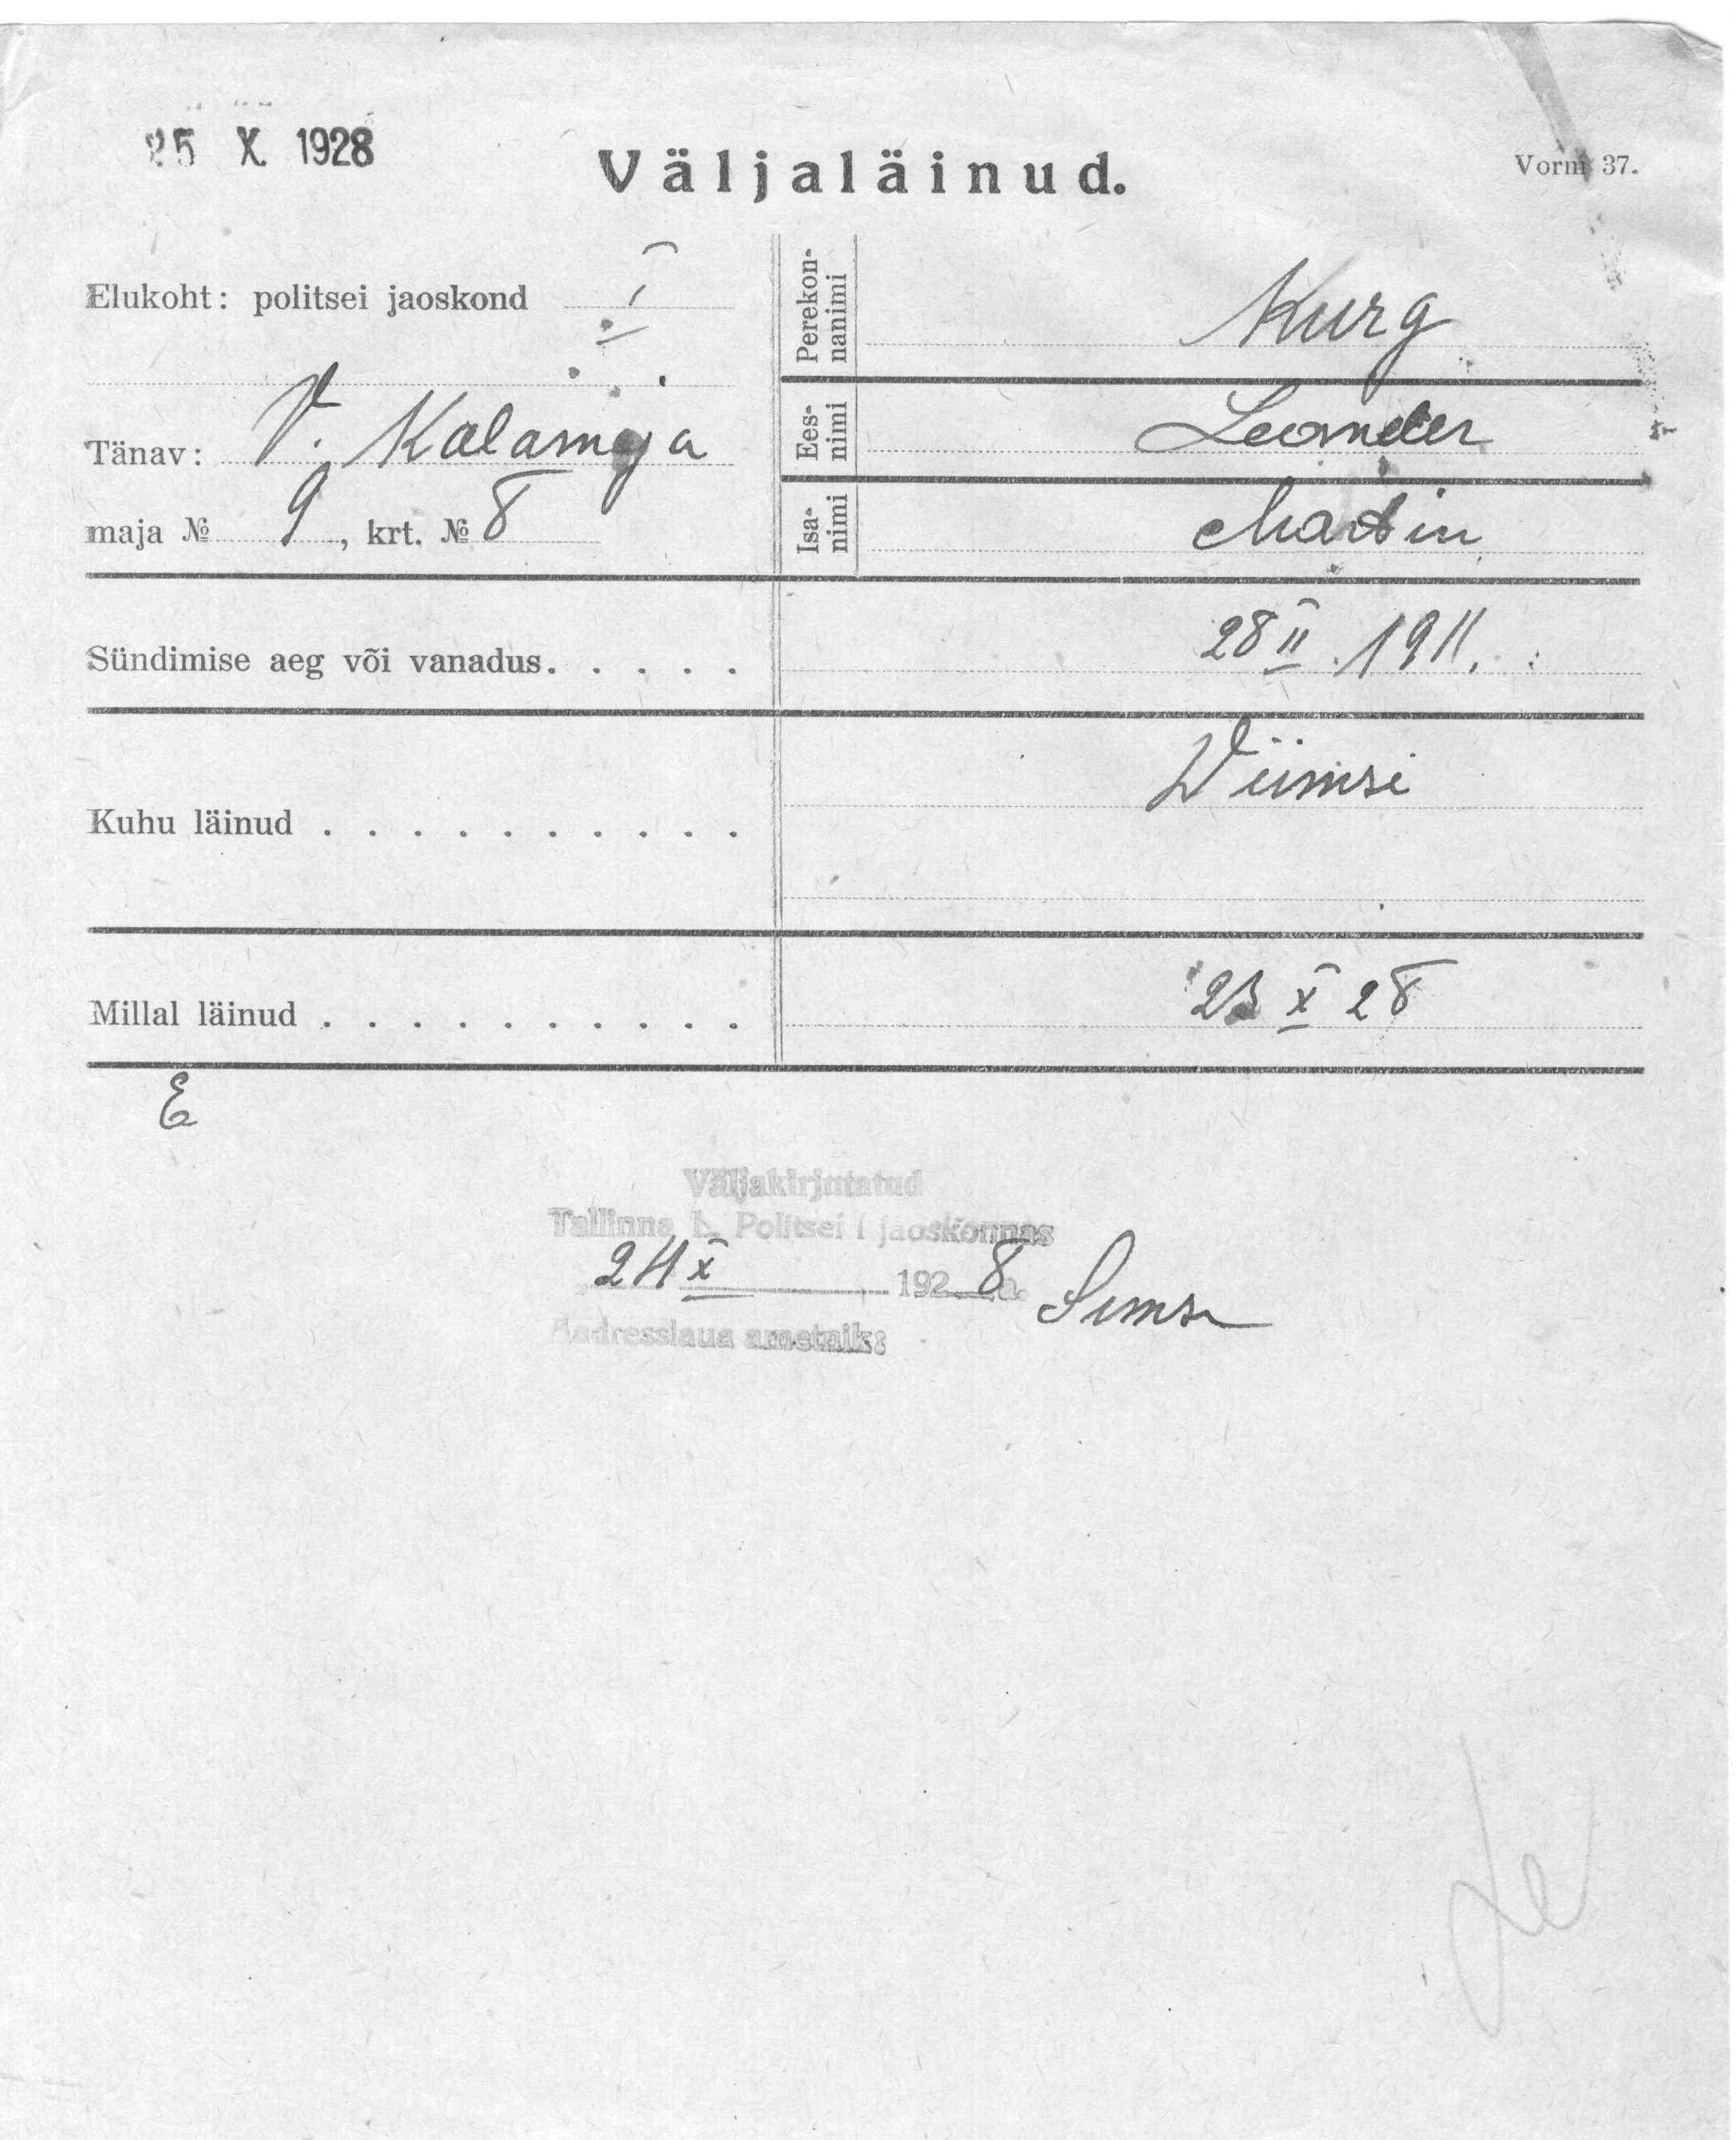 25 X 1928
Väljaläinud.
Vorm 37.
Elukoht: politsei jaoskond I
Tänav: V. Kalamaja
maja № 9, krt. № 8
Perekon-
nanimi
Kurg
Ees-
nimi
Leander
Isa-
nimi
Martin
Sündimise aeg või vanadus. . . . . 28 II 1911.
Kuhu läinud . . . . . . . . . . Wiimsi
Millal läinud . . . . . . . . . . 23 X 28
E
Väljakirjutatud
Tallinna L. Politsei I jaoskonnas
24 X 1928 a.
Aadresslaua ametnik: